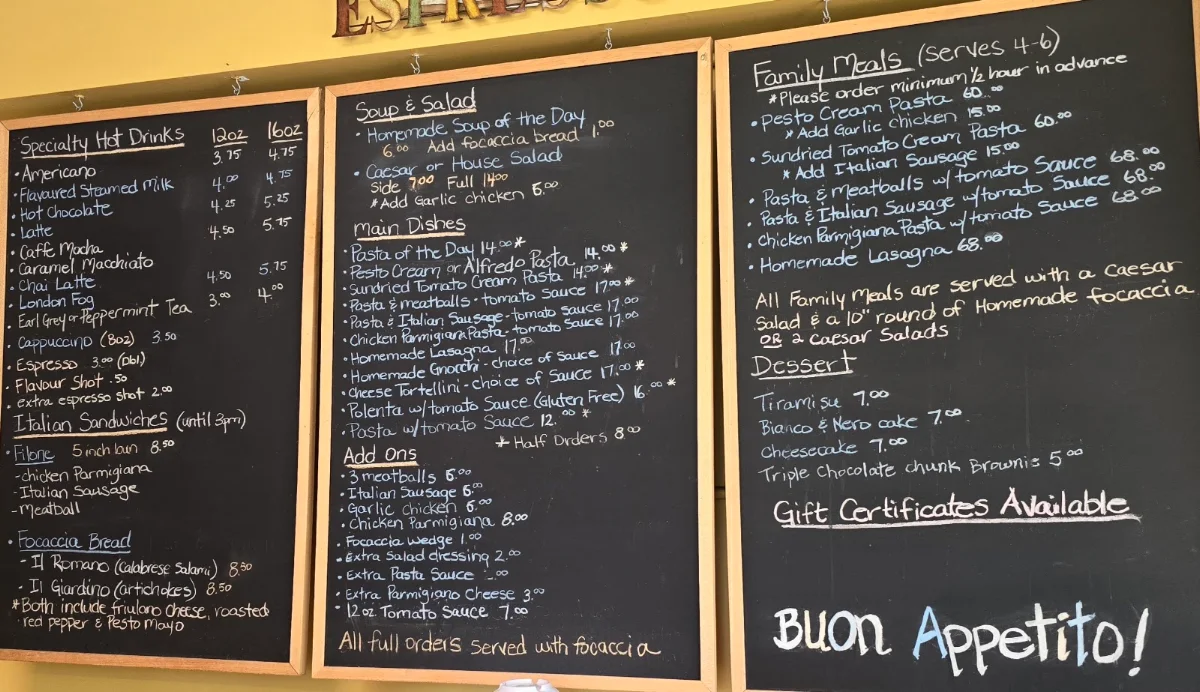 ESPRESSO
Specialty Hot Drinks 12oz 16oz
• Americano 3.75 4.75
• Flavoured Steamed Milk
• Hot Chocolate 4.00 4.75
• Latte 4.25 5.25
• Caffe Mocha 4.50 5.75
• Caramel Macchiato
• Chai Latte
• London Fog 4.50 5.75
• Earl Grey or Peppermint Tea 3.00 4.00
• Cappuccino (8oz) 3.50
• Espresso 3.00 (Dbl)
• Flavour Shot .50
• extra espresso shot 2.00
Italian Sandwiches (until 3pm)
• Filone 5 inch bun 8.50
-chicken Parmigiana
-Italian Sausage
-Meatball
• Focaccia Bread
- Il Romano (Calabrese Salami) 8.50
- Il Giardino (artichokes) 8.50
*Both include friulano cheese, roasted
red pepper & Pesto Mayo
Soup & Salad
• Homemade Soup of the Day
6.00 Add focaccia bread 1.00
• Caesar or House Salad
Side 7.00 Full 14.00
*Add Garlic chicken 6.00
Main Dishes
• Pasta of the Day 14.00*
• Pesto Cream or Alfredo Pasta 14.00*
• Sundried Tomato Cream Pasta 14.00*
• Pasta & meatballs - tomato Sauce 17.00*
• Pasta & Italian Sausage - tomato sauce 17.00
• Chicken Parmigiana Pasta - tomato Sauce 17.00
• Homemade Lasagna 17.00
• Homemade Gnocchi - choice of Sauce 17.00
• Cheese Tortellini - choice of Sauce 17.00*
• Polenta w/tomato Sauce (Gluten Free) 16.00*
• Pasta w/tomato Sauce 12.00*
* Half Orders 8.00
Add Ons
• 3 meatballs 6.00
• Italian Sausage 6.00
• Garlic chicken 6.00
• Chicken Parmigiana 8.00
• Focaccia Wedge 1.00
• Extra Salad dressing 2.00
• Extra Pasta Sauce
• Extra Parmigiano Cheese 3.00
• 12oz Tomato Sauce 7.00
All full orders served with focaccia
Family Meals (serves 4-6)
*Please order minimum 1/2 hour in advance
• Pesto Cream Pasta 60.00
*Add Garlic chicken 15.00
• Sundried Tomato Cream Pasta 60.00
*Add Italian Sausage 15.00
• Pasta & Meatballs w/tomato Sauce 68.00
• Pasta & Italian Sausage w/tomato Sauce 68.00
• Chicken Parmigiana Pasta w/tomato Sauce 68.00
• Homemade Lasagna 68.00
All Family Meals are served with a Caesar
Salad & a 10" round of Homemade focaccia
OR 2 Caesar Salads
Dessert
Tiramisu 7.00
Bianco & Nero cake 7.00
Cheesecake 7.00
Triple Chocolate chunk Brownie 5.00
Gift Certificates Available
Buon Appetito!